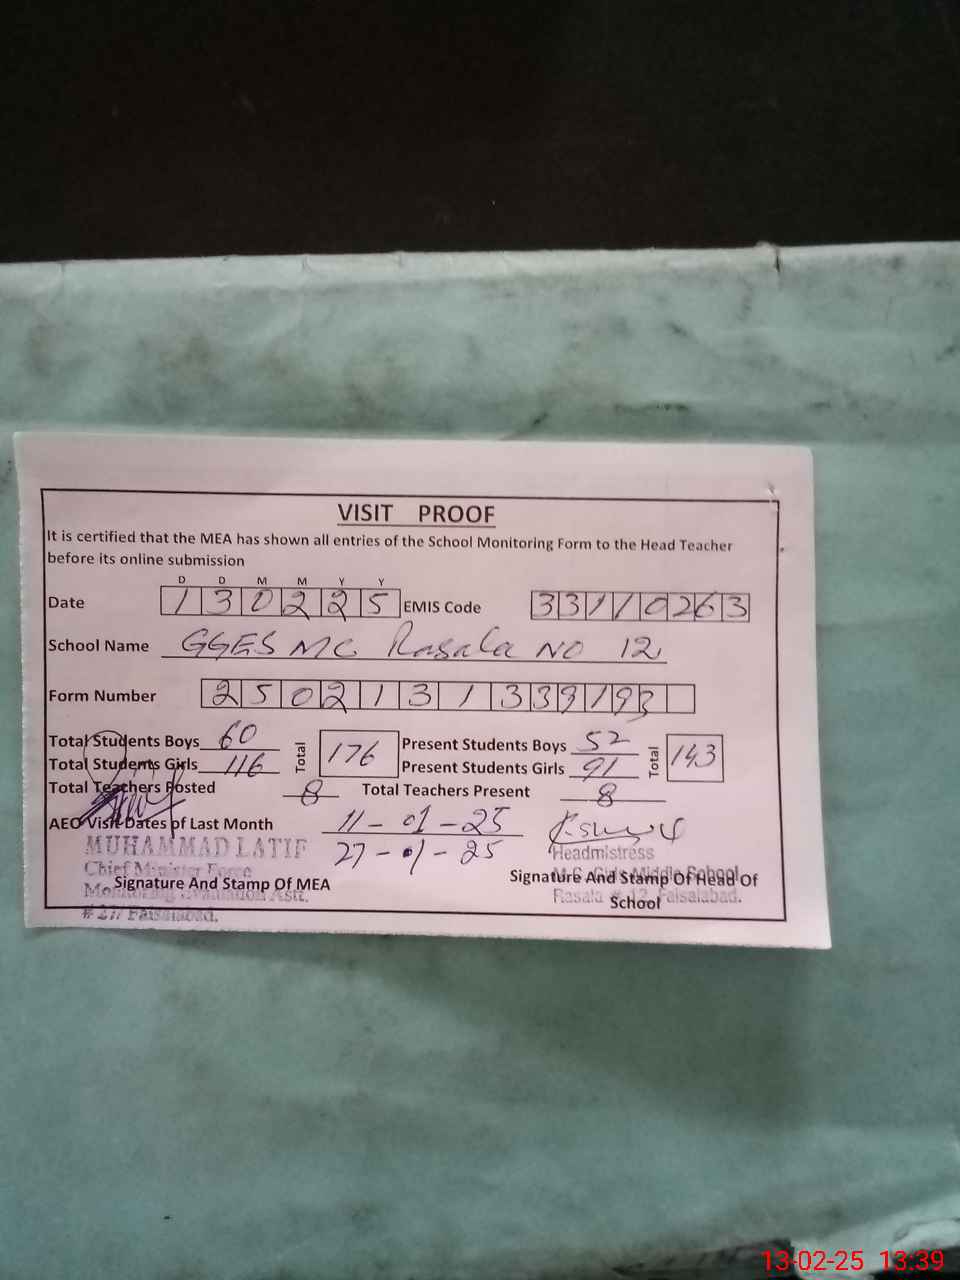 VISIT PROOF
It is certified that the MEA has shown all entries of the School Monitoring Form to the Head Teacher
before its online submission
D D M M Y Y
Date 130225 EMIS Code 33110263
School Name GGES MC Rasala NO 12
Form Number 2502131339193
Total Students Boys 60 Total 176 Present Students Boys 52 Total 143
Total Students Girls 116 Present Students Girls 91
Total Teachers Posted 8 Total Teachers Present 8
AEO Visit Dates of Last Month 11-01-25
27-01-25
MUHAMMAD LATIF
Chief Minister Force
Monitoring Evaluation Asit.
# 27/ Faisalabad.
Signature And Stamp Of MEA
Headmistress
M.C. Girls Middle School
Rasala # 12 Faisalabad.
Signature And Stamp Of Head Of
School
13-02-25 13:39